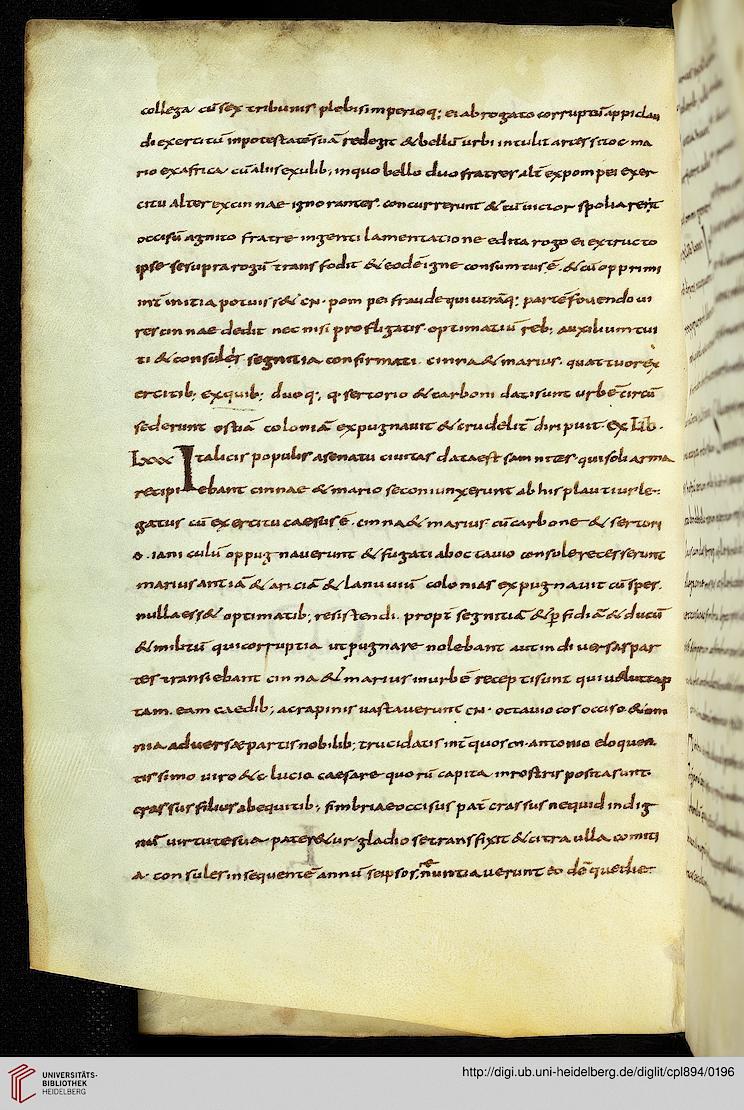 collega cū sex tribunis plebis imperioq; ei abrogato corruptū appi clau
di exercitū inpotestatē suā redegit & bellū urbi intulit
rio exafrica cū aliis exulib; inquo bello duo fratres alt̄ ex pompei exer
citu alter ex cinnae ignorantes concurrerunt & cū uictor spoliaret
occisū agnito fratre ingenti lamentatione edita rogo ei extructo
ipse se supra rogū transfodit & eodē igne consumtus ē. & cū opprimi
int̄ initia potuiss& cn· pompei fraude qui utrāq; partē fouendo ui
res cinnae dedit nec nisi profligatis optimatiū reb; auxilium tui
ti & consules segnitia confirmati. cinna & marius quattuor ex
ercitib; ex quib; duo q; q· sertorio & carboni dati sunt urbē circū
sederunt ostiā coloniā expugnauit & crudelit̄ diripuit. Ex Lib·
Lxxx Italicis populis a senatu ciuitas data est samnites qui soli arma
recipiebant cinnae & mario se coniunxerunt ab his plautius le
gatus cū exercitu caesus ē. cinna & marius cū carbone & sertori
o. ianiculū oppugnauerunt & fugati aboctauio consule recesserunt
marius antiā & ariciā & lanuuiū colonias expugnauit cū spes
nulla ess& optimatib; resistendi. propt̄ segnitiā & p̄fidiā & ducū
& militū qui corruptia ut pugnare nolebant aut in diuersas par
tes transiebant cinna & marius in urbē recepti sunt qui uelut cap
tam eam caedib; ac rapinis uastauerunt cn· octauio cos occiso & om
nia aduersae partis nobilib; trucidatis int̄ quos cn· antonio eloquen
tissimo uiro & c· lucio caesare quorū capita in rostris posita sunt.
crassus filius ab equitib; fimbriae occisus pat̄ crassus ne quid indig
uirtute sua pater&ur gladio se transfixit & citra ulla comiti
a. consules insequentē annū se ipsos renuntiauerunt eo dē que die
UNIVERSITÄTS-
BIBLIOTHEK
HEIDELBERG
http://digi.ub.uni-heidelberg.de/diglit/cpl894/0196